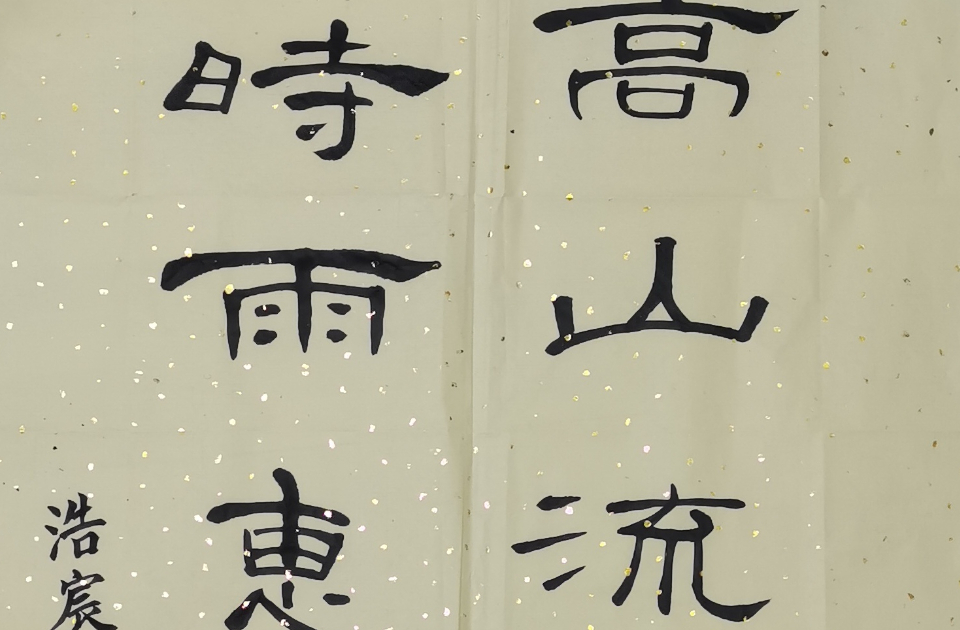 高山流
時雨惠
浩宸